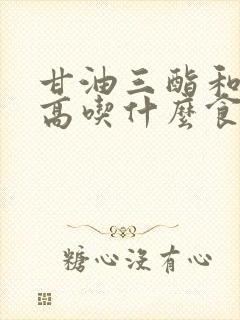 甘油三酯和
高喫什麼食
糖心沒有心